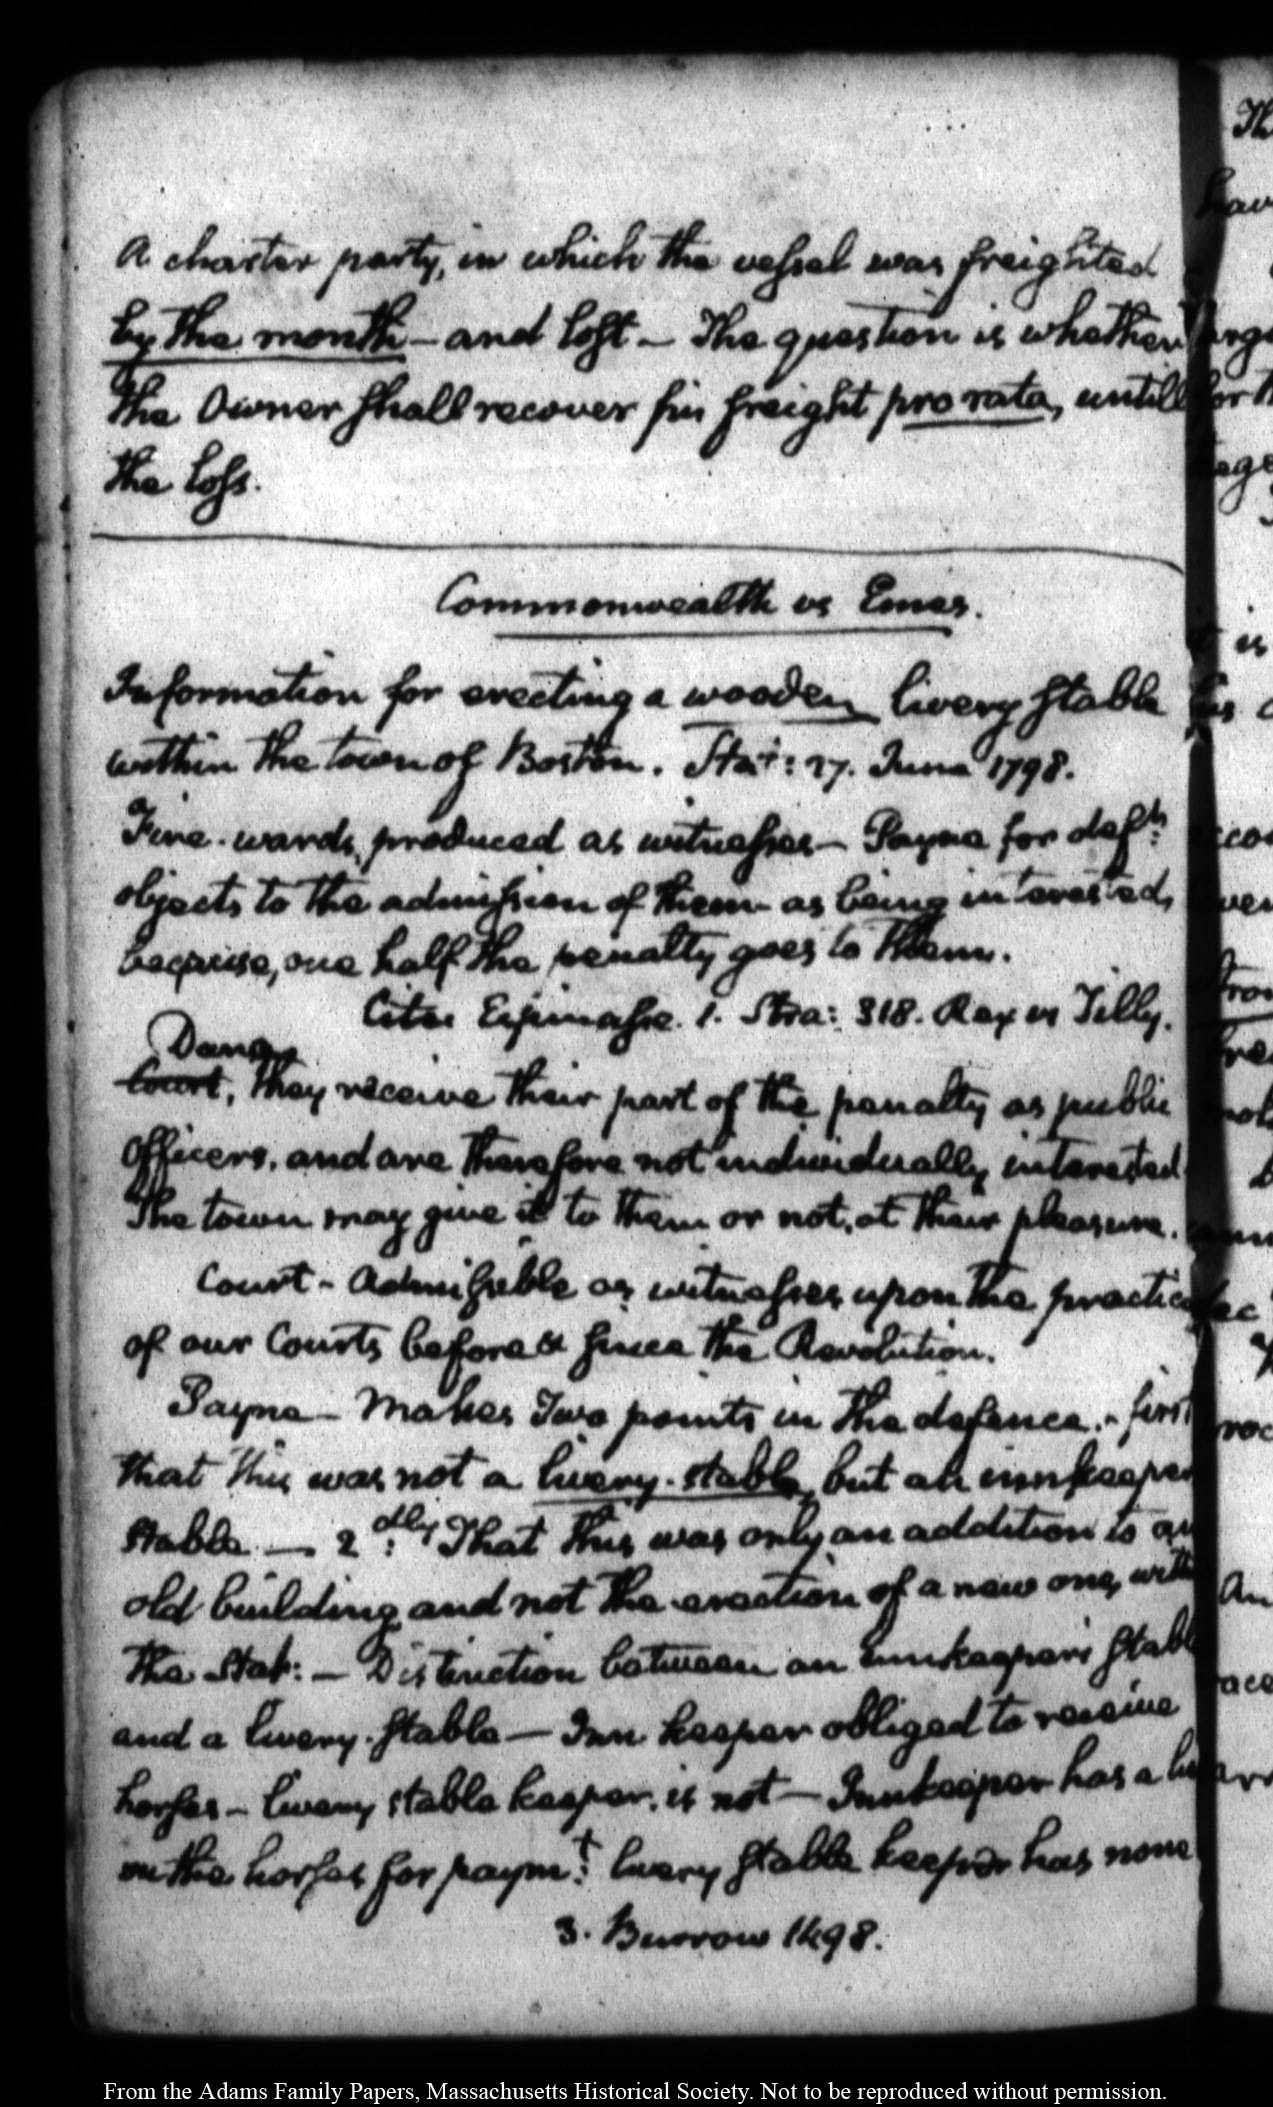 A charter party, in which the vessel was freighted
by the month – and lost – The question is whether
the Owner shall recover his freight pro rata, untill
the loss.
Commonwealth vs Emes.
Information for erecting a wooden livery stable
within the town of Boston. Stat: 27. June 1798.
Fire-wards, produced as witnesses – Payne for deft:
objects to the admission of them as being interested,
because, one half the penalty goes to them.
Cites Espinasse. 1. Stra: 318. Rex vs Tilly.
Dana
Court, They receive their part of the penalty as public
Officers, and are therefore not individually interested.
The town may give it to them or not, at their pleasure.
Court – Admissible as witnesses upon the practice
of our Courts before & since the Revolution.
Payne – Makes Two points in the defence. – first
that this was not a livery-stable, but an innkeeper
stable — 2dly: That this was only an addition to an
old building and not the erection of a new one, with
the Stat: – Distinction between an Innkeeper's stabl
and a livery-stable — Inn keeper obliged to receive
horses – livery stable keeper, is not — Innkeeper has a li
on the horses for paymt: livery stable keeper has none
3. Burrow 1498.
From the Adams Family Papers, Massachusetts Historical Society. Not to be reproduced without permission.